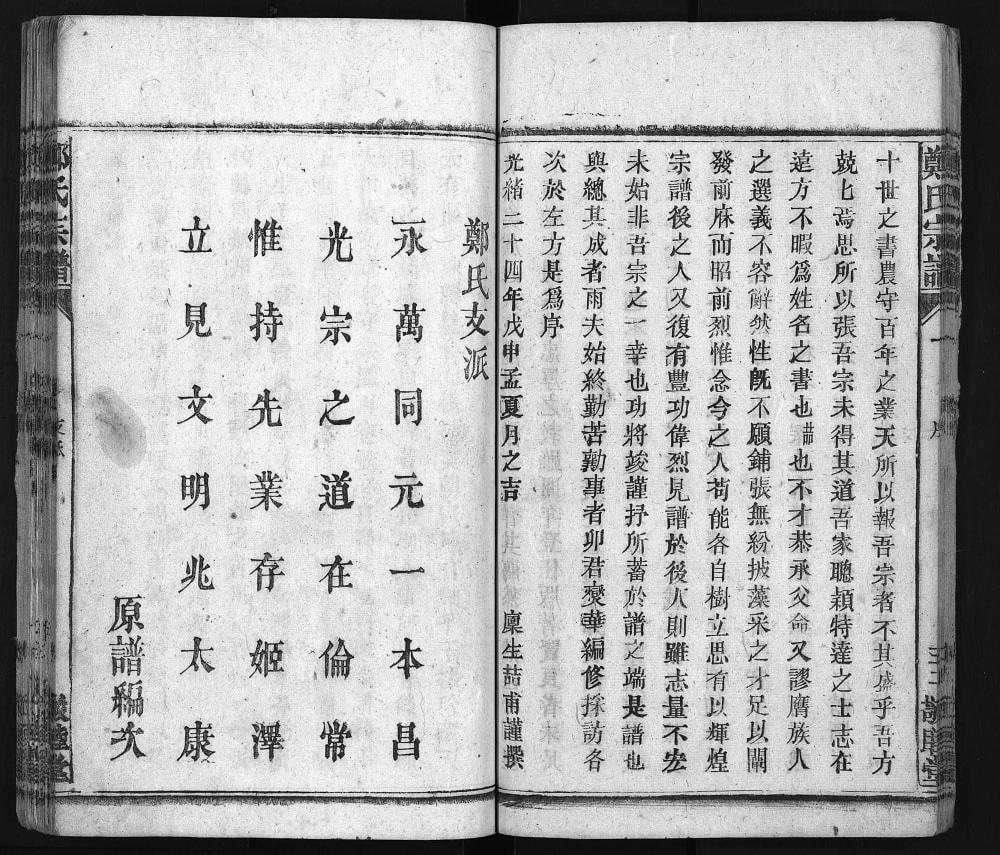 鄭氏宗譜
一
序
敦睦堂
十世之書農守百年之業天所以報吾宗者不其盛乎吾方
兢兢焉思所以張吾宗未得其道吾家聰穎特達之士志在
遠方不暇爲姓名之書也喆也不才恭承父命又謬膺族人
之選義不容辭然性旣不願鋪張無紛披藻采之才足以闡
發前庥而昭前烈惟念今之人苟能各自樹立思有以輝煌
宗譜後之人又復有豐功偉烈見譜於後人則雖志量不宏
未始非吾宗之一幸也功將竣謹抒所蓄於譜之端是譜也
與總其成者雨夫始終勤苦勷事者卯君燮華編修採訪各
次於左方是爲序
光緒二十四年戊申孟夏月之吉 廩生喆甫謹撰
鄭氏支派
永萬同元一本昌
光宗之道在倫常
惟持先業存姬澤
立見文明兆太康
原譜編次
鄭氏宗譜
支派
敦睦堂